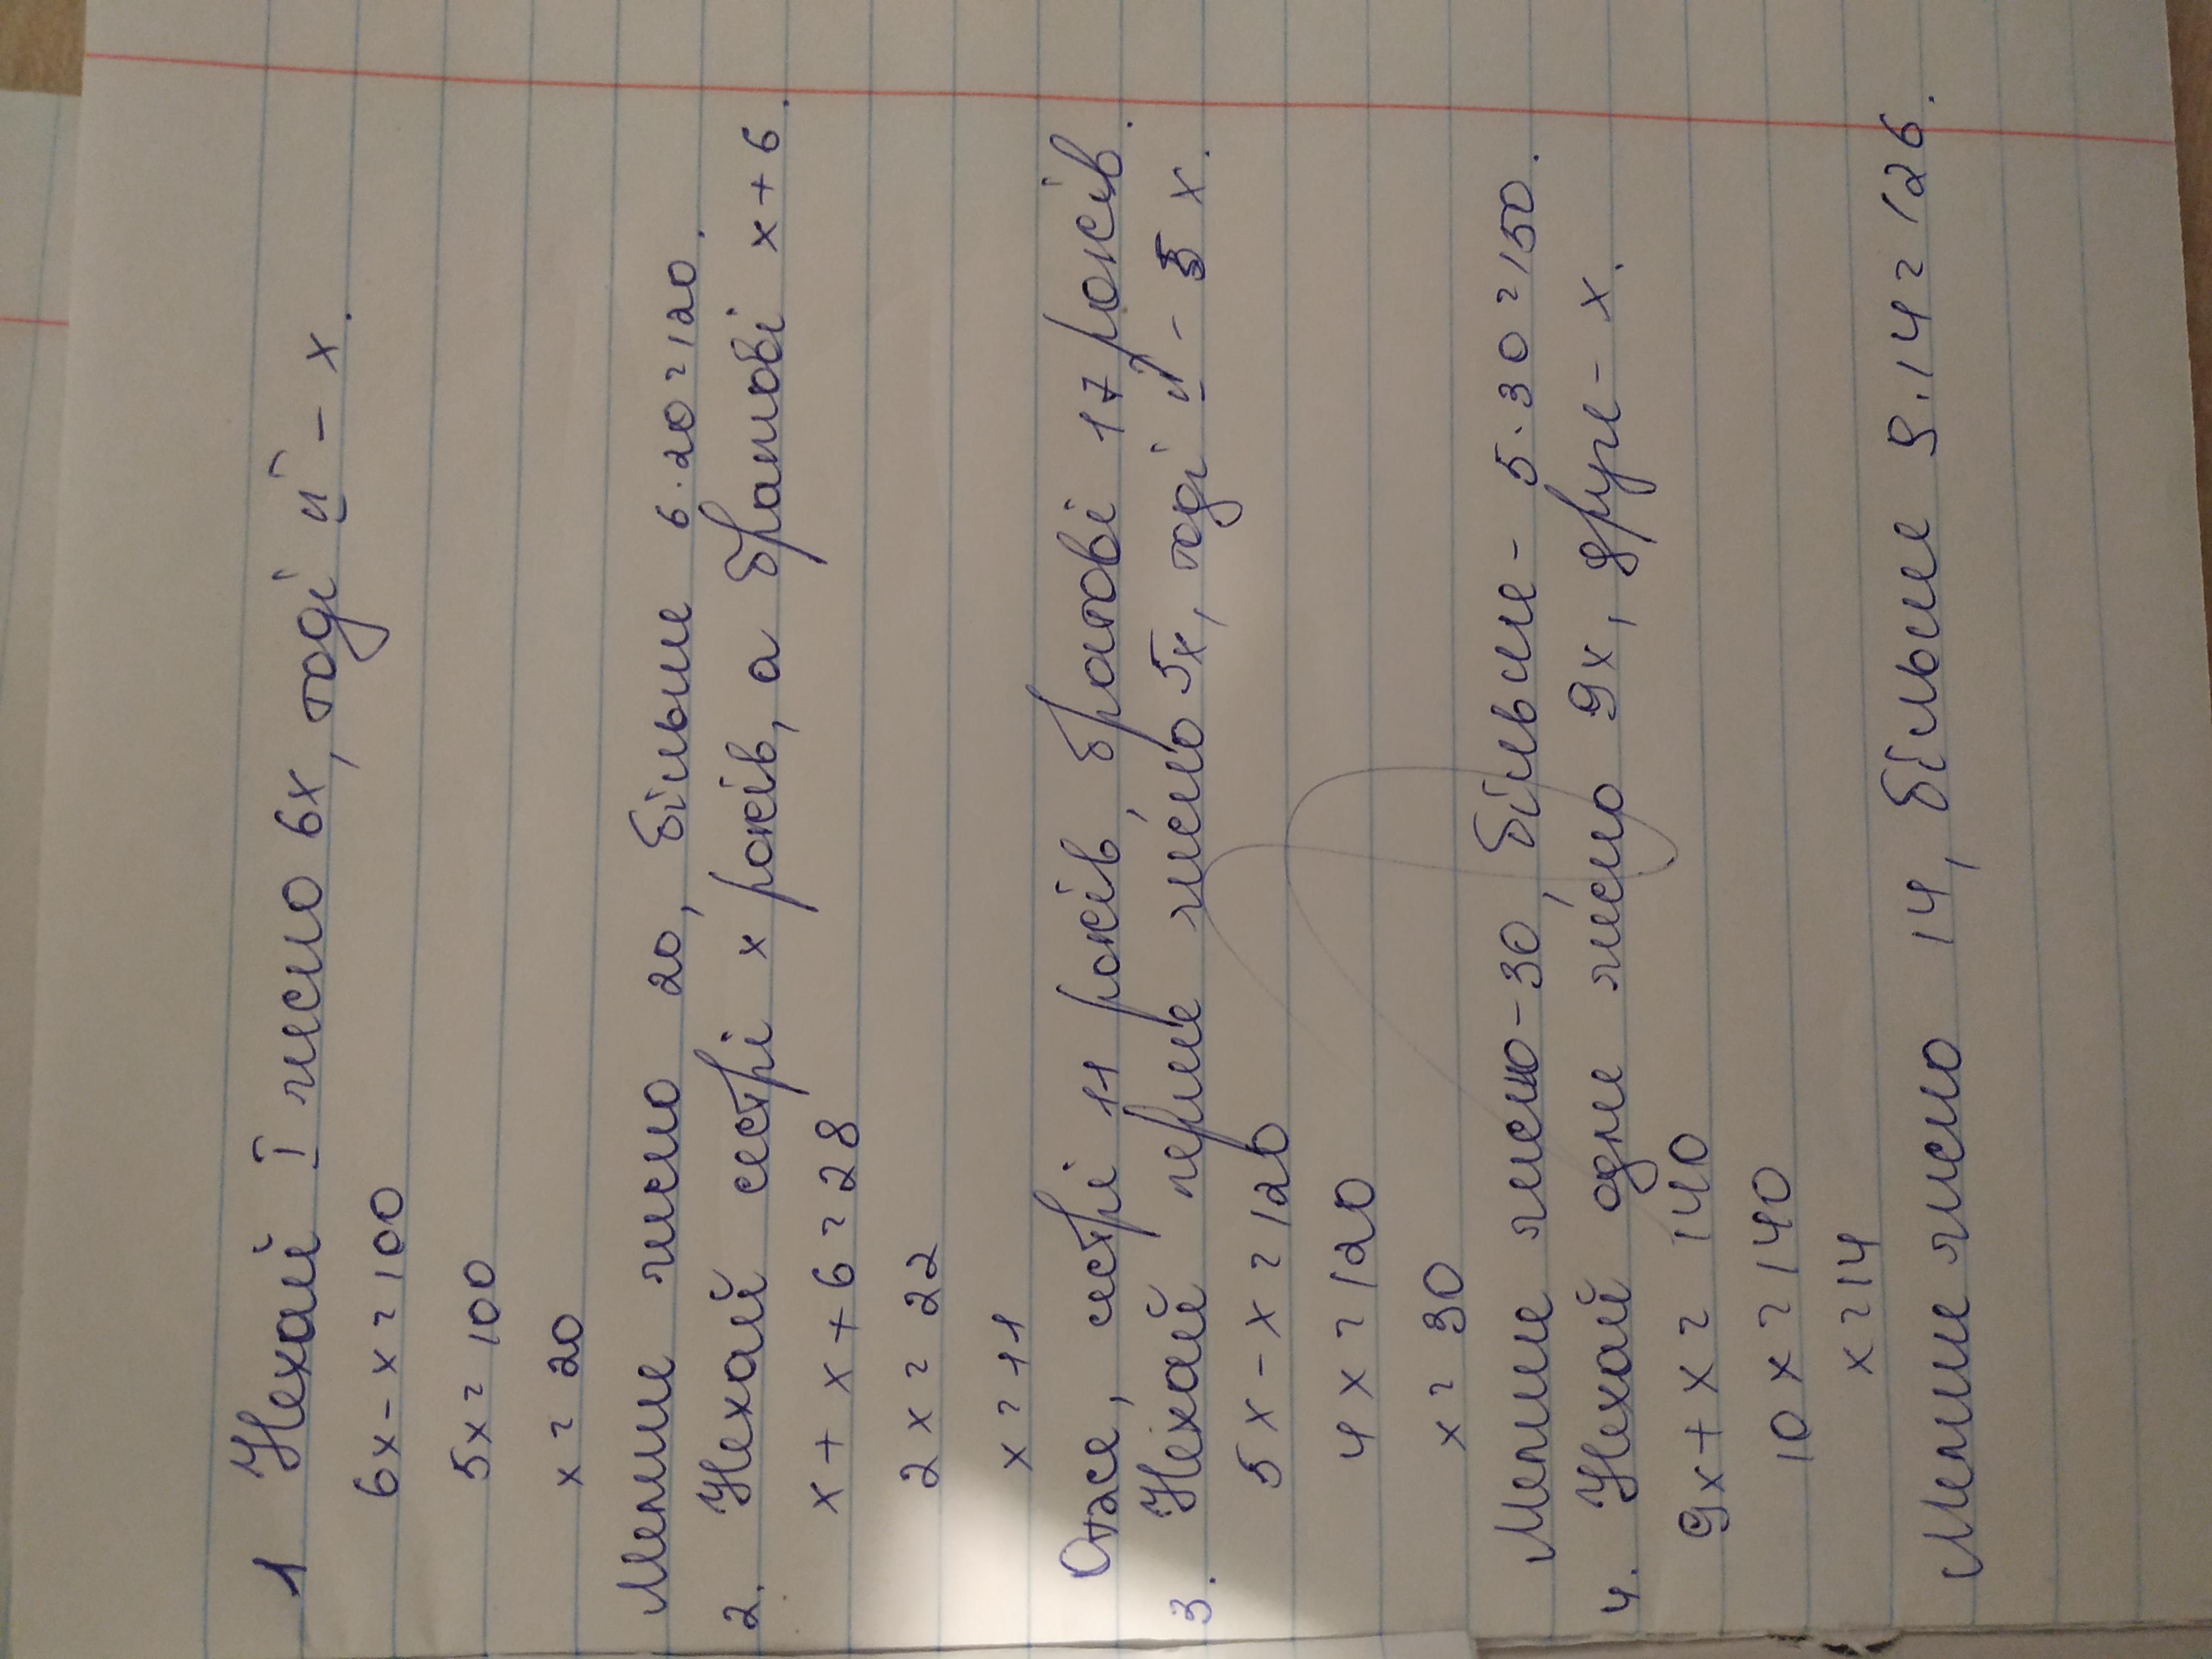 1 Нехай I число 6х, тоді II - х.
6х - х = 100
5х = 100
х = 20
Менше число 20, більше 6·20=120.
2. Нехай сестрі х років, а братові х+6.
х + х + 6 = 28
2х = 22
х = 11
Отже, сестрі 11 років, братові 17 років.
3. Нехай перше число 5х, тоді II - х.
5х - х = 120
4х = 120
х = 30
Менше число - 30, більше - 5·30=150.
4. Нехай одне число 9х, друге - х.
9х + х = 140
10х = 140
х = 14
Менше число 14, більше 9·14=126.